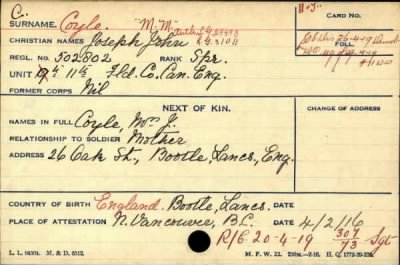 C.
SURNAME. Coyle. "M.M"
CARD NO.
CHRISTIAN NAMES Joseph John
REGL. NO. 502802 RANK Spr.
FOLL.
UNIT 11th Fld. Co. Can. Eng.
FORMER CORPS Nil
NEXT OF KIN.
CHANGE OF ADDRESS
NAMES IN FULL Coyle, Mrs J.
RELATIONSHIP TO SOLDIER Mother
ADDRESS 26 Oak St., Bootle, Lancs, Eng.
COUNTRY OF BIRTH England. Bootle, Lancs. DATE
PLACE OF ATTESTATION N. Vancouver, B.C. DATE 4/2/16
R/C. 20-4-19 307/73 Sgt
M. F. W. 22.